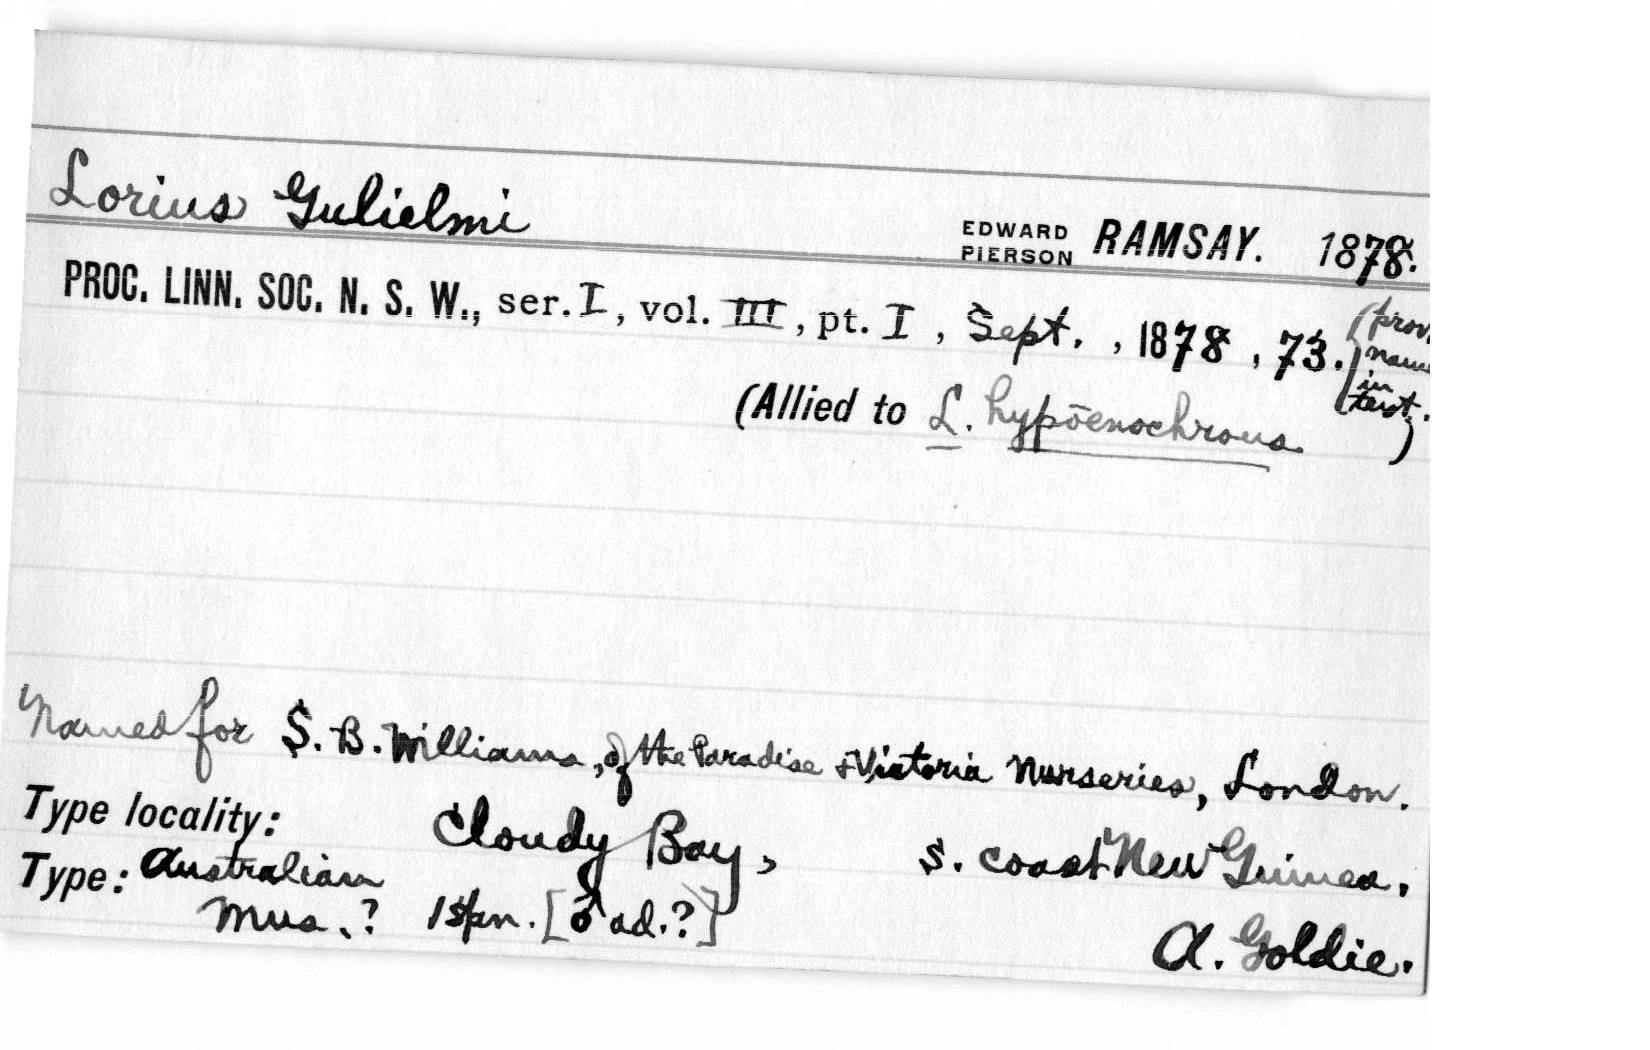 Lorius Gulielmi
EDWARD PIERSON RAMSAY. 1878.
PROC. LINN. SOC. N. S. W., ser. I, vol. III, pt. I, Sept., 1878, 73. (prov. name in text.)
(Allied to L. hypœnochrous )
Named for S. B. Williams, of the Paradise & Victoria Nurseries, London.
Type locality: Cloudy Bay, S. coast New Guinea.
Type: Australian Mus.? 1 spn. [♂ ad.?]
A. Goldie.